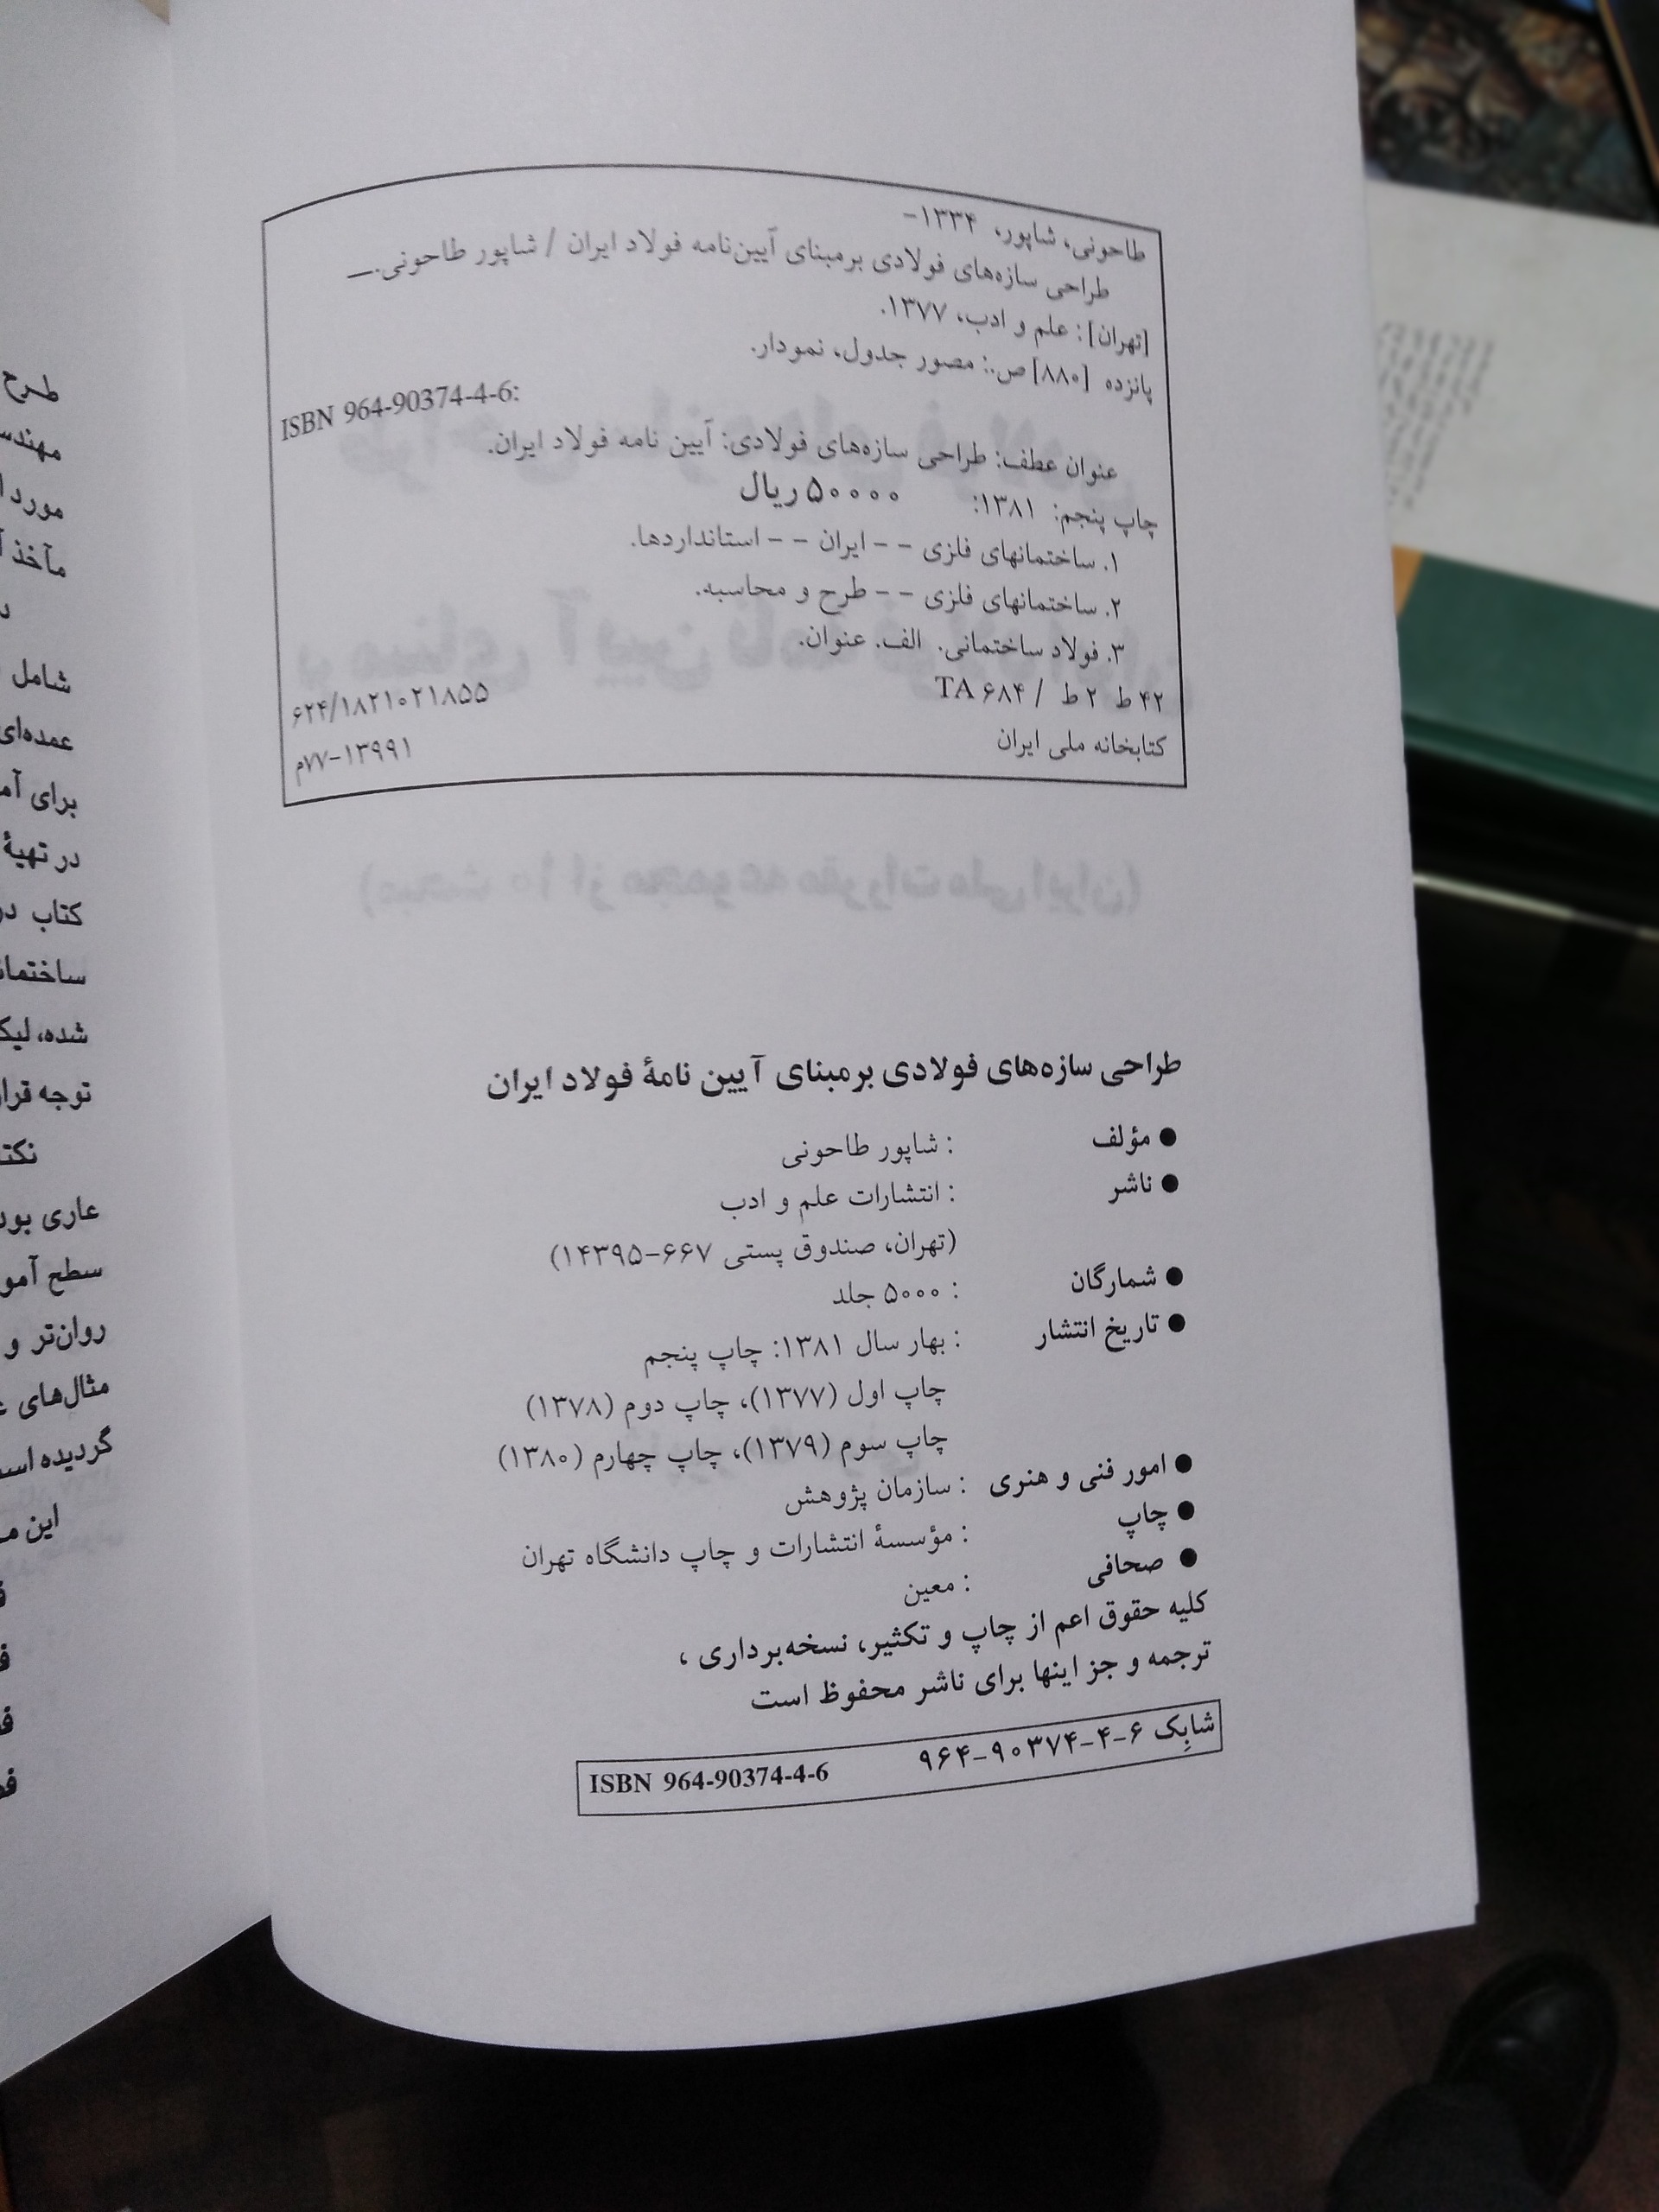 طاحونی، شاپور، ۱۳۳۴-
طراحی سازه‌های فولادی برمبنای آیین‌نامه فولاد ایران / شاپور طاحونی.—
[تهران]: علم و ادب، ۱۳۷۷.
پانزده [۸۸۰] ص.: مصور جدول، نمودار.
ISBN 964-90374-4-6:
عنوان عطف: طراحی سازه‌های فولادی: آیین نامه فولاد ایران.
چاپ پنجم: ۱۳۸۱: ۵۰۰۰۰ ریال
۱. ساختمانهای فلزی - - ایران - - استانداردها.
۲. ساختمانهای فلزی - - طرح و محاسبه.
۳. فولاد ساختمانی. الف. عنوان.
۴۲ ط ۲ ط / TA ۶۸۴ ۶۲۴/۱۸۲۱۰۲۱۸۵۵
کتابخانه ملی ایران ۷۷-۱۳۹۹۱م
طراحی سازه‌های فولادی برمبنای آیین نامۀ فولاد ایران
● مؤلف : شاپور طاحونی
● ناشر : انتشارات علم و ادب
(تهران، صندوق پستی ۶۶۷-۱۴۳۹۵)
● شمارگان : ۵۰۰۰ جلد
● تاریخ انتشار : بهار سال ۱۳۸۱: چاپ پنجم
چاپ اول (۱۳۷۷)، چاپ دوم (۱۳۷۸)
چاپ سوم (۱۳۷۹)، چاپ چهارم (۱۳۸۰)
● امور فنی و هنری : سازمان پژوهش
● چاپ : مؤسسۀ انتشارات و چاپ دانشگاه تهران
● صحافی : معین
کلیه حقوق اعم از چاپ و تکثیر، نسخه‌برداری ،
ترجمه و جز اینها برای ناشر محفوظ است
شابِک ۶-۴-۹۰۳۷۴-۹۶۴ ISBN 964-90374-4-6
طرح
مورد
مآخذ
شامل
عمده‌ای
برای
در تهیۀ
کتاب
شده،
توجه
عاری
سطح
روان‌تر و
مثال‌های
گردیده
این